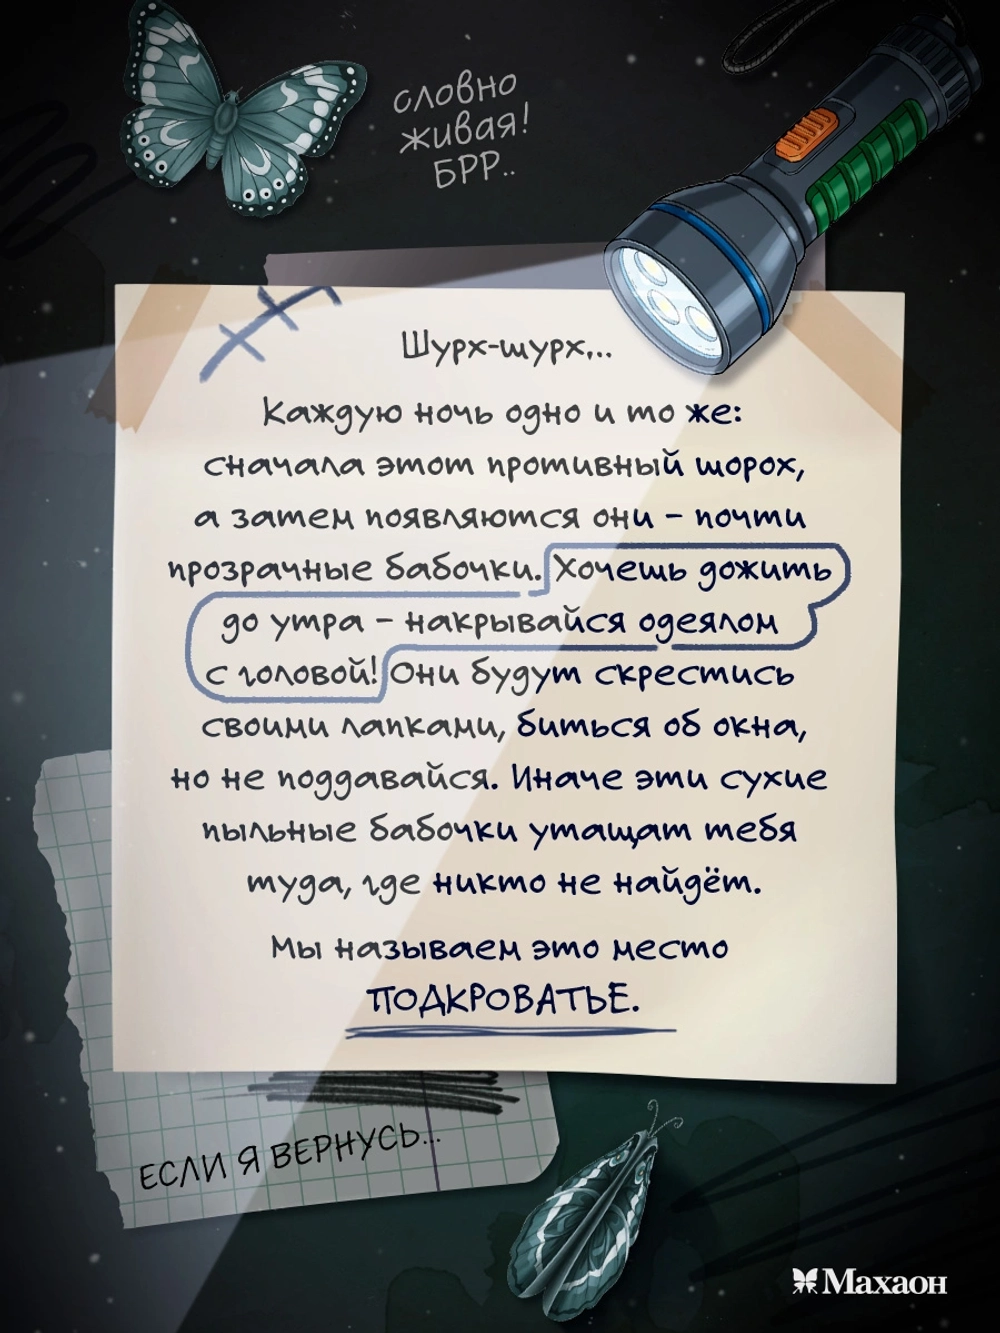 словно
живая!
БРР..
Шурх-шурх...
Каждую ночь одно и то же:
сначала этот противный шорох,
а затем появляются они – почти
прозрачные бабочки. Хочешь дожить
до утра – накрывайся одеялом
с головой! Они будут скрестись
своими лапками, биться об окна,
но не поддавайся. Иначе эти сухие
пыльные бабочки утащат тебя
туда, где никто не найдёт.
Мы называем это место
ПОДКРОВАТЬЕ.
ЕСЛИ Я ВЕРНУСЬ...
Махаон